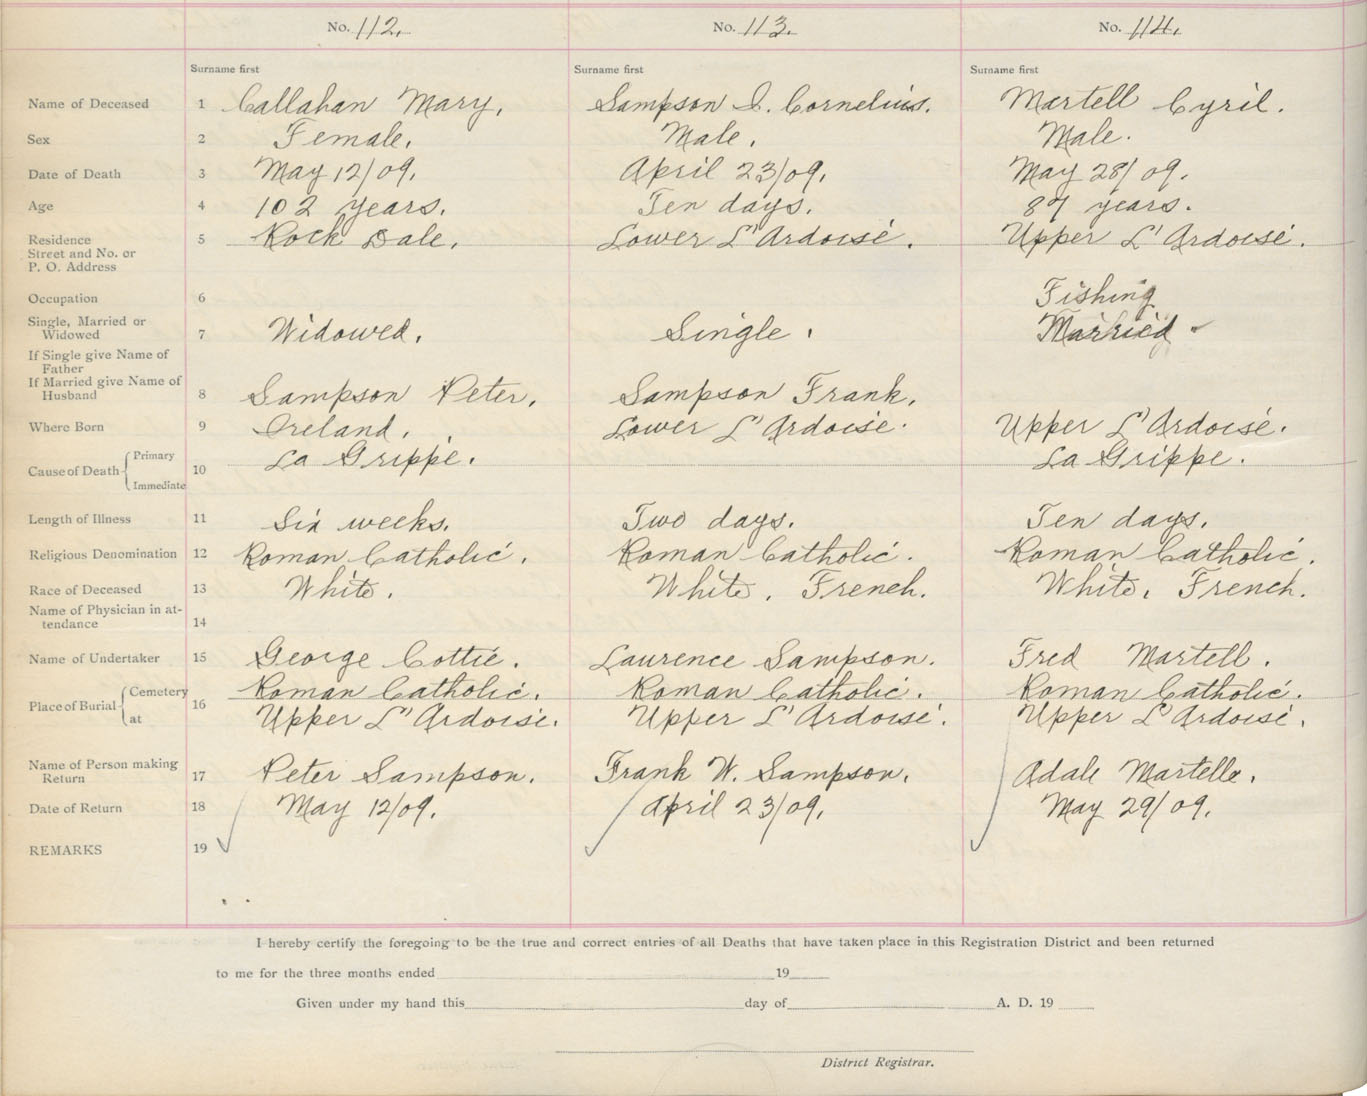 No. 112. No. 113. No. 114.
Surname first Surname first Surname first
Name of Deceased 1 Callahan Mary. Sampson I. Cornelius. Martell Cyril.
Sex 2 Female. Male. Male.
Date of Death 3 May 12/09. April 23/09. May 28/09.
Age 4 102 years. Ten days. 87 years.
Residence 5 Rock Dale. Lower L'Ardoise. Upper L'Ardoise.
Street and No. or
P. O. Address
Occupation 6 Fishing
Single, Married or
Widowed 7 Widowed. Single. Married
If Single give Name of
Father
If Married give Name of
Husband 8 Sampson Peter. Sampson Frank.
Where Born 9 Ireland. Lower L'Ardoise. Upper L'Ardoise.
Cause of Death Primary 10 La Grippe. La Grippe.
Immediate
Length of Illness 11 Six weeks. Two days. Ten days.
Religious Denomination 12 Roman Catholic. Roman Catholic. Roman Catholic.
Race of Deceased 13 White. White. French. White. French.
Name of Physician in at-
tendance 14
Name of Undertaker 15 George Cottie. Laurence Sampson. Fred Martell.
Place of Burial Cemetery 16 Roman Catholic. Roman Catholic. Roman Catholic.
at Upper L'Ardoise. Upper L'Ardoise. Upper L'Ardoise.
Name of Person making
Return 17 Peter Sampson. Frank W. Sampson. Adale Martelle.
Date of Return 18 May 12/09. April 23/09. May 29/09.
REMARKS 19
I hereby certify the foregoing to be the true and correct entries of all Deaths that have taken place in this Registration District and been returned
to me for the three months ended 19
Given under my hand this day of A. D. 19
District Registrar.